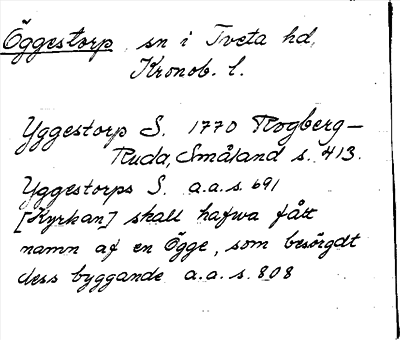 Öggestorp, sn i Tveta hd,
Kronob. l.
Yggestorp S. 1770 Rogberg-
Ruda, Småland s. 413.
Yggestorps S. a.a.s. 691
[Kyrkan] skall hafwa fått
namn af en Ögge, som besörgdt
dess byggande a.a.s. 808